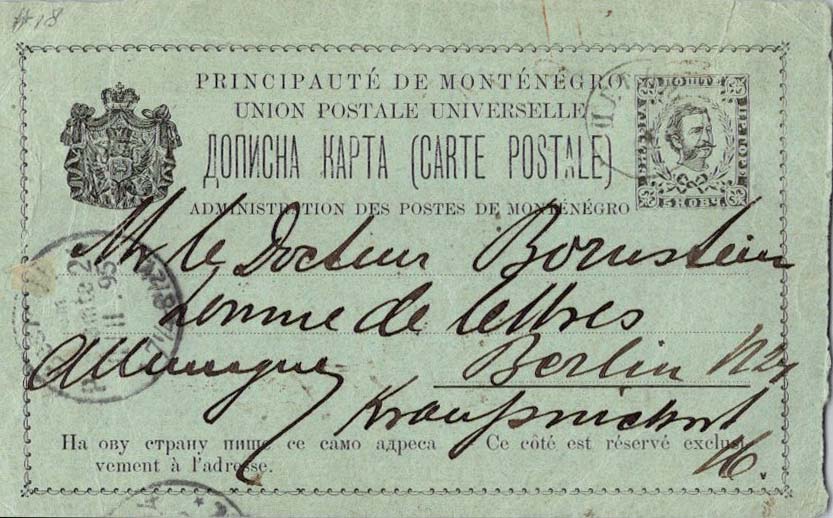 #18
PRINCIPAUTÉ DE MONTÉNÉGRO
UNION POSTALE UNIVERSELLE
ДОПИСНА КАРТА (CARTE POSTALE)
ADMINISTRATION DES POSTES DE MONTÉNÉGRO
5 НОВЧ
Mr le Docteur Bornstein
homme de lettres
Allemagne Berlin N24
На ову страну пише се само адреса Ce côté est réservé exclusi-
vement à l'adresse.
II 95